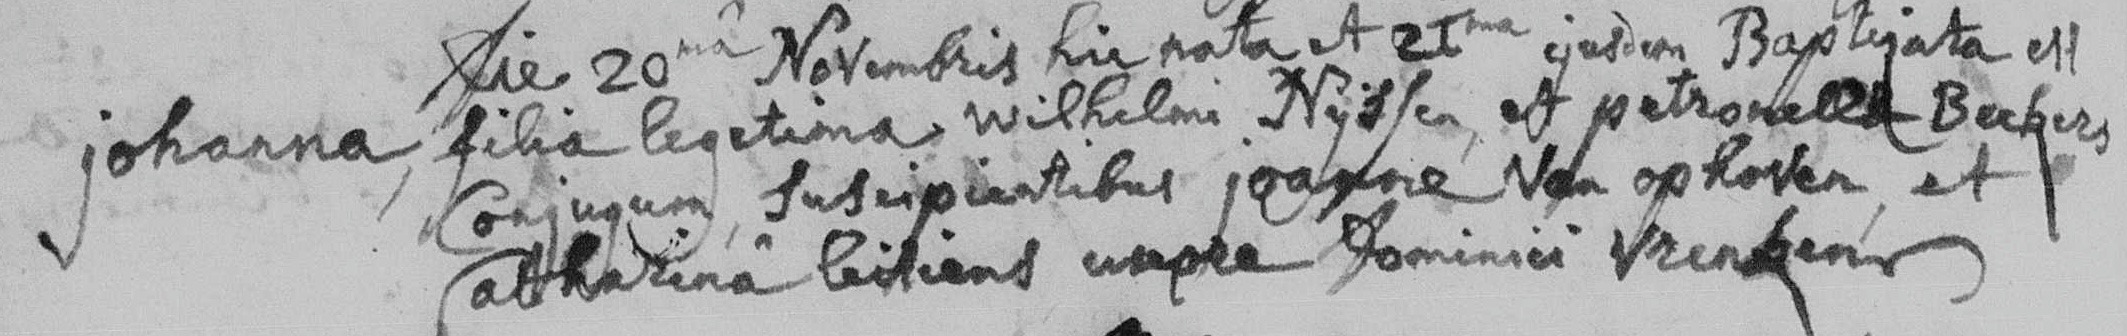 Die 20mâ Novembris hic nata et 21ma ejusdem Baptizata est
johanna, filia legetima wilhelmi Nijssen, et petronella Beckers
Conjugum, suscipientibus joanne Van ophoven, et
Catharinâ leitiens uxore Dominici Vrencken